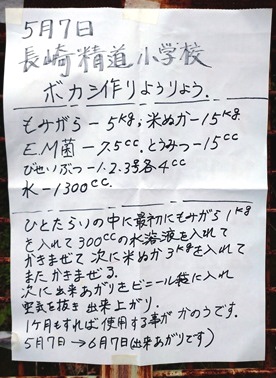 5月7日
長崎精道小学校
ボカシ作りようりょう.
もみがら－5kg；米ぬか－15kg
E.M菌－7.5cc.とうみつ－15cc
びせいぶつ－1.2.3号各4cc
水－1300cc.
ひとたらいの中に最初にもみがら1kg
を入れて300ccの水溶液を入れて
かきまぜて次に米ぬか3kgを入れて
またかきまぜる.
次に出来あがりをビニール袋に入れ
空気を抜き出来上がり.
1ケ月もすれば使用する事が かのうです.
5月7日→6月7日(出来あがりです)